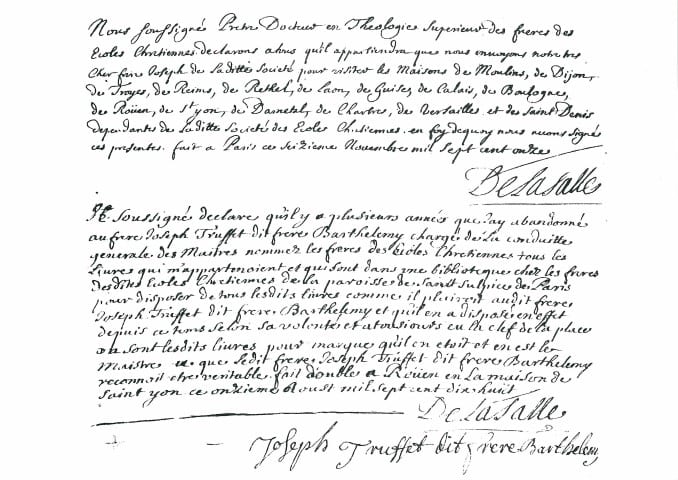 Nous soussigné Pretre Docteur en Theologie Superieur des freres des
Ecoles Chretiennes declarons a tous qu'il appartiendra que nous envoyons notre tres
Cher frere Joseph de Laditte Societé pour visiter les Maisons de Moulins, de Dijon,
de Troyes, de Reims, de Rethel, de Laon, de Guise, de Calais, de Boulogne,
de Roüen, de St yon, de Darnetal, de Chartres, de Versailles et des Saint Denis
dependantes de Laditte Societé des Ecoles Chretiennes. en foy dequoy nous avons signé
ces presentes. fait a Paris ce seizieme Novembre mil sept cent onze
De La Salle
Je soussigné declare qu'il y a plusieurs années que J'ay abandonné
au frere Joseph Truffet dit frere Barthelemy chargé de La conduitte
generale des Maitres nommez les freres des Ecoles Chretiennes tous les
Livres qui m'appartenoient et qui sont dans une biblioteque chez les freres
desdites Ecoles Chretiennes de la paroisse de saint sulpice de Paris
pour disposer de tous lesdits livres comme il plairoit audit frere
Joseph Truffet dit frere Barthelemy et qu'il en a disposé en effet
depuis ce tems selon sa volonté et a toujours eu la clef de la place
ou sont lesdits livres pour marque qu'il en etoit et en est le
Maistre que ledit frere Joseph Truffet dit frere Barthelemy
reconnoit etre veritable. fait double a Roüen en La maison de
Saint yon ce onzieme Aoust mil sept cent dix huit
De La Salle
Joseph Truffet dit frere Barthelemy